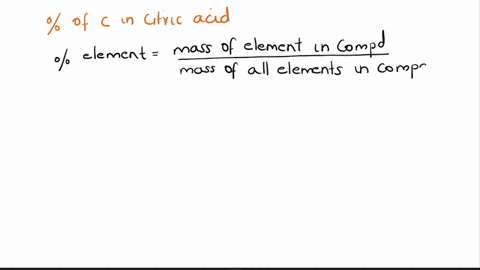 % of C in Citric acid
% element = mass of element in Compd
mass of all elements in comp